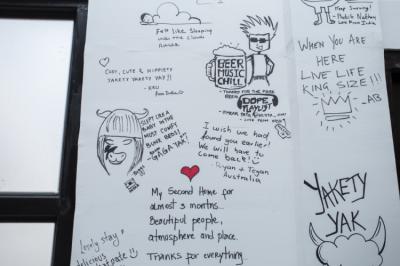 Felt like Sleeping
with the clouds
Keep Smiling!
COSY, CUTE & HIPPIETY
YAKETY YAKETY YAY!!
BEER
MUSIC
CHILL
- THANKS FOR THE FREE
BEER
DOPE
PLAYLIST
SLEPT LIKE A
BABY IN THE
MOST COMFY
BUNK BEDS!
GAGA TAK!
WHEN YOU ARE
HERE
LIVE LIFE
KING SIZE!!!
- AB
I wish we had
found you earlier!
We will have to
come back!
- Ryan + Tegan
Australia
My Second Home for
almost 3 months..
Beautiful people,
atmosphere and place.
THANKS for everything.
YAKETY
YAK
lovely stay
delicious